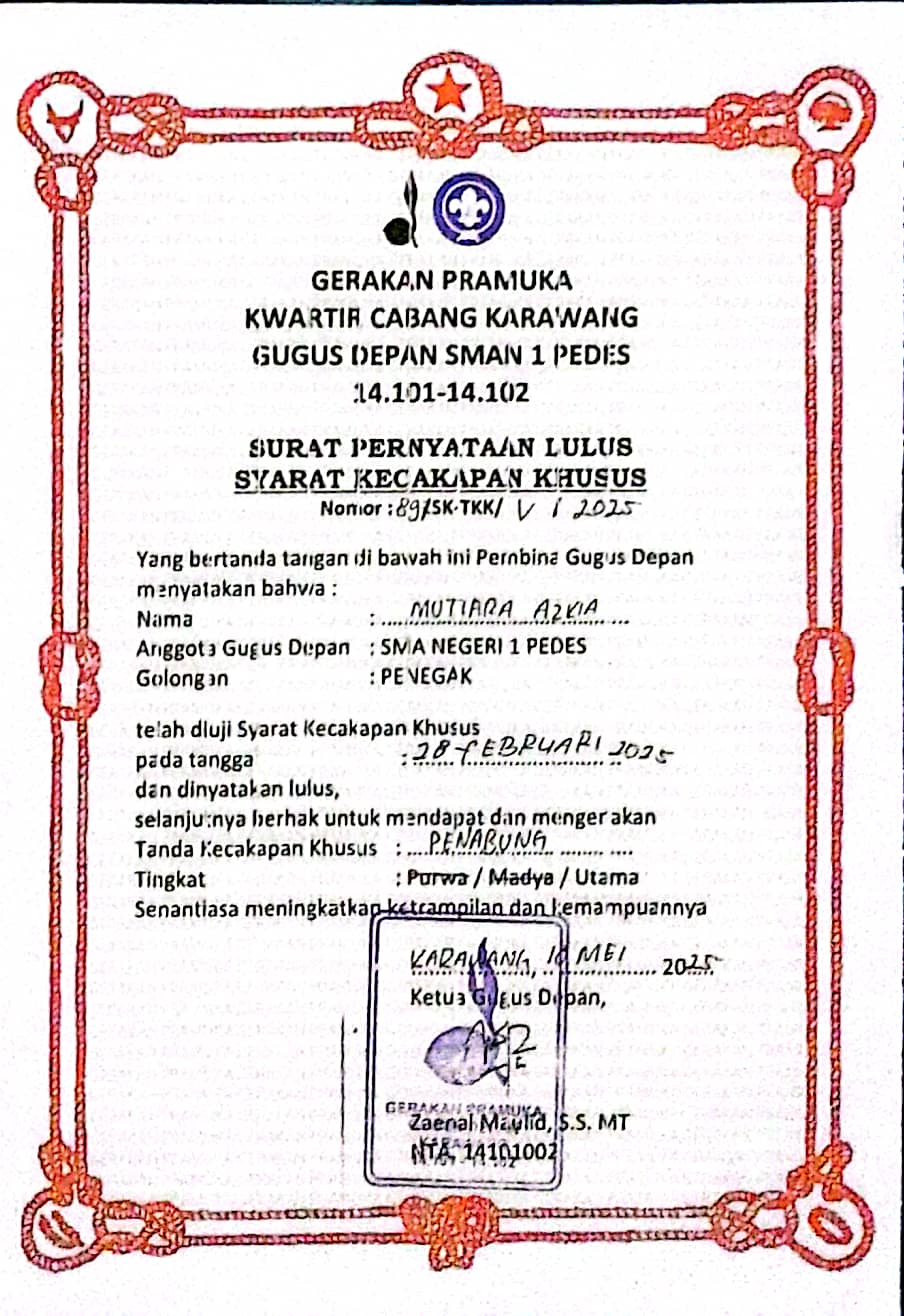 GERAKAN PRAMUKA
KWARTIR CABANG KARAWANG
GUGUS DEPAN SMAN 1 PEDES
14.101-14.102
SURAT PERNYATAAN LULUS
SYARAT KECAKAPAN KHUSUS
Nomor : 89/SK-TKK/ V / 2025
Yang bertanda tangan di bawah ini Pembina Gugus Depan
menyatakan bahwa :
Nama : MUTIARA AZKIA
Anggota Gugus Depan : SMA NEGERI 1 PEDES
Golongan : PENEGAK
telah diuji Syarat Kecakapan Khusus
pada tangga : 28 FEBRUARI 2025
dan dinyatakan lulus,
selanjutnya berhak untuk mendapat dan mengenakan
Tanda Kecakapan Khusus : PENABUNG
Tingkat : Purwa / Madya / Utama
Senantiasa meningkatkan ketrampilan dan kemampuannya
KARAWANG, 10 MEI 2025
Ketua Gugus Depan,
GERAKAN PRAMUKA
Zaenal Maulid, S.S. MT
NTA. 14101002